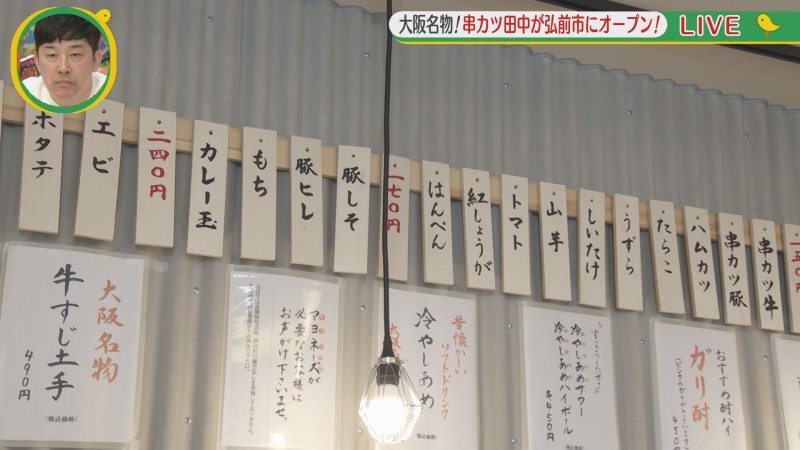 大阪名物!串カツ田中が弘前市にオープン!
LIVE
ホタテ
エビ
二四〇円
カレー玉
もち
豚ヒレ
豚しそ
一七〇円
はんぺん
紅しょうが
トマト
山芋
しいたけ
うずら
たらこ
ハムカツ
串カツ豚
串カツ牛
大阪名物
牛すじ土手
490円
(税込価格)
マヨネーズが
必要なお客様は
お声がけ下さいませ。
昔懐かしい
ソフトドリンク
冷やしあめ
(税込価格)
冷やしあめサワー
冷やしあめハイボール
各450円
(税込価格)
おすすめ酎ハイ
ガリ酎
450円